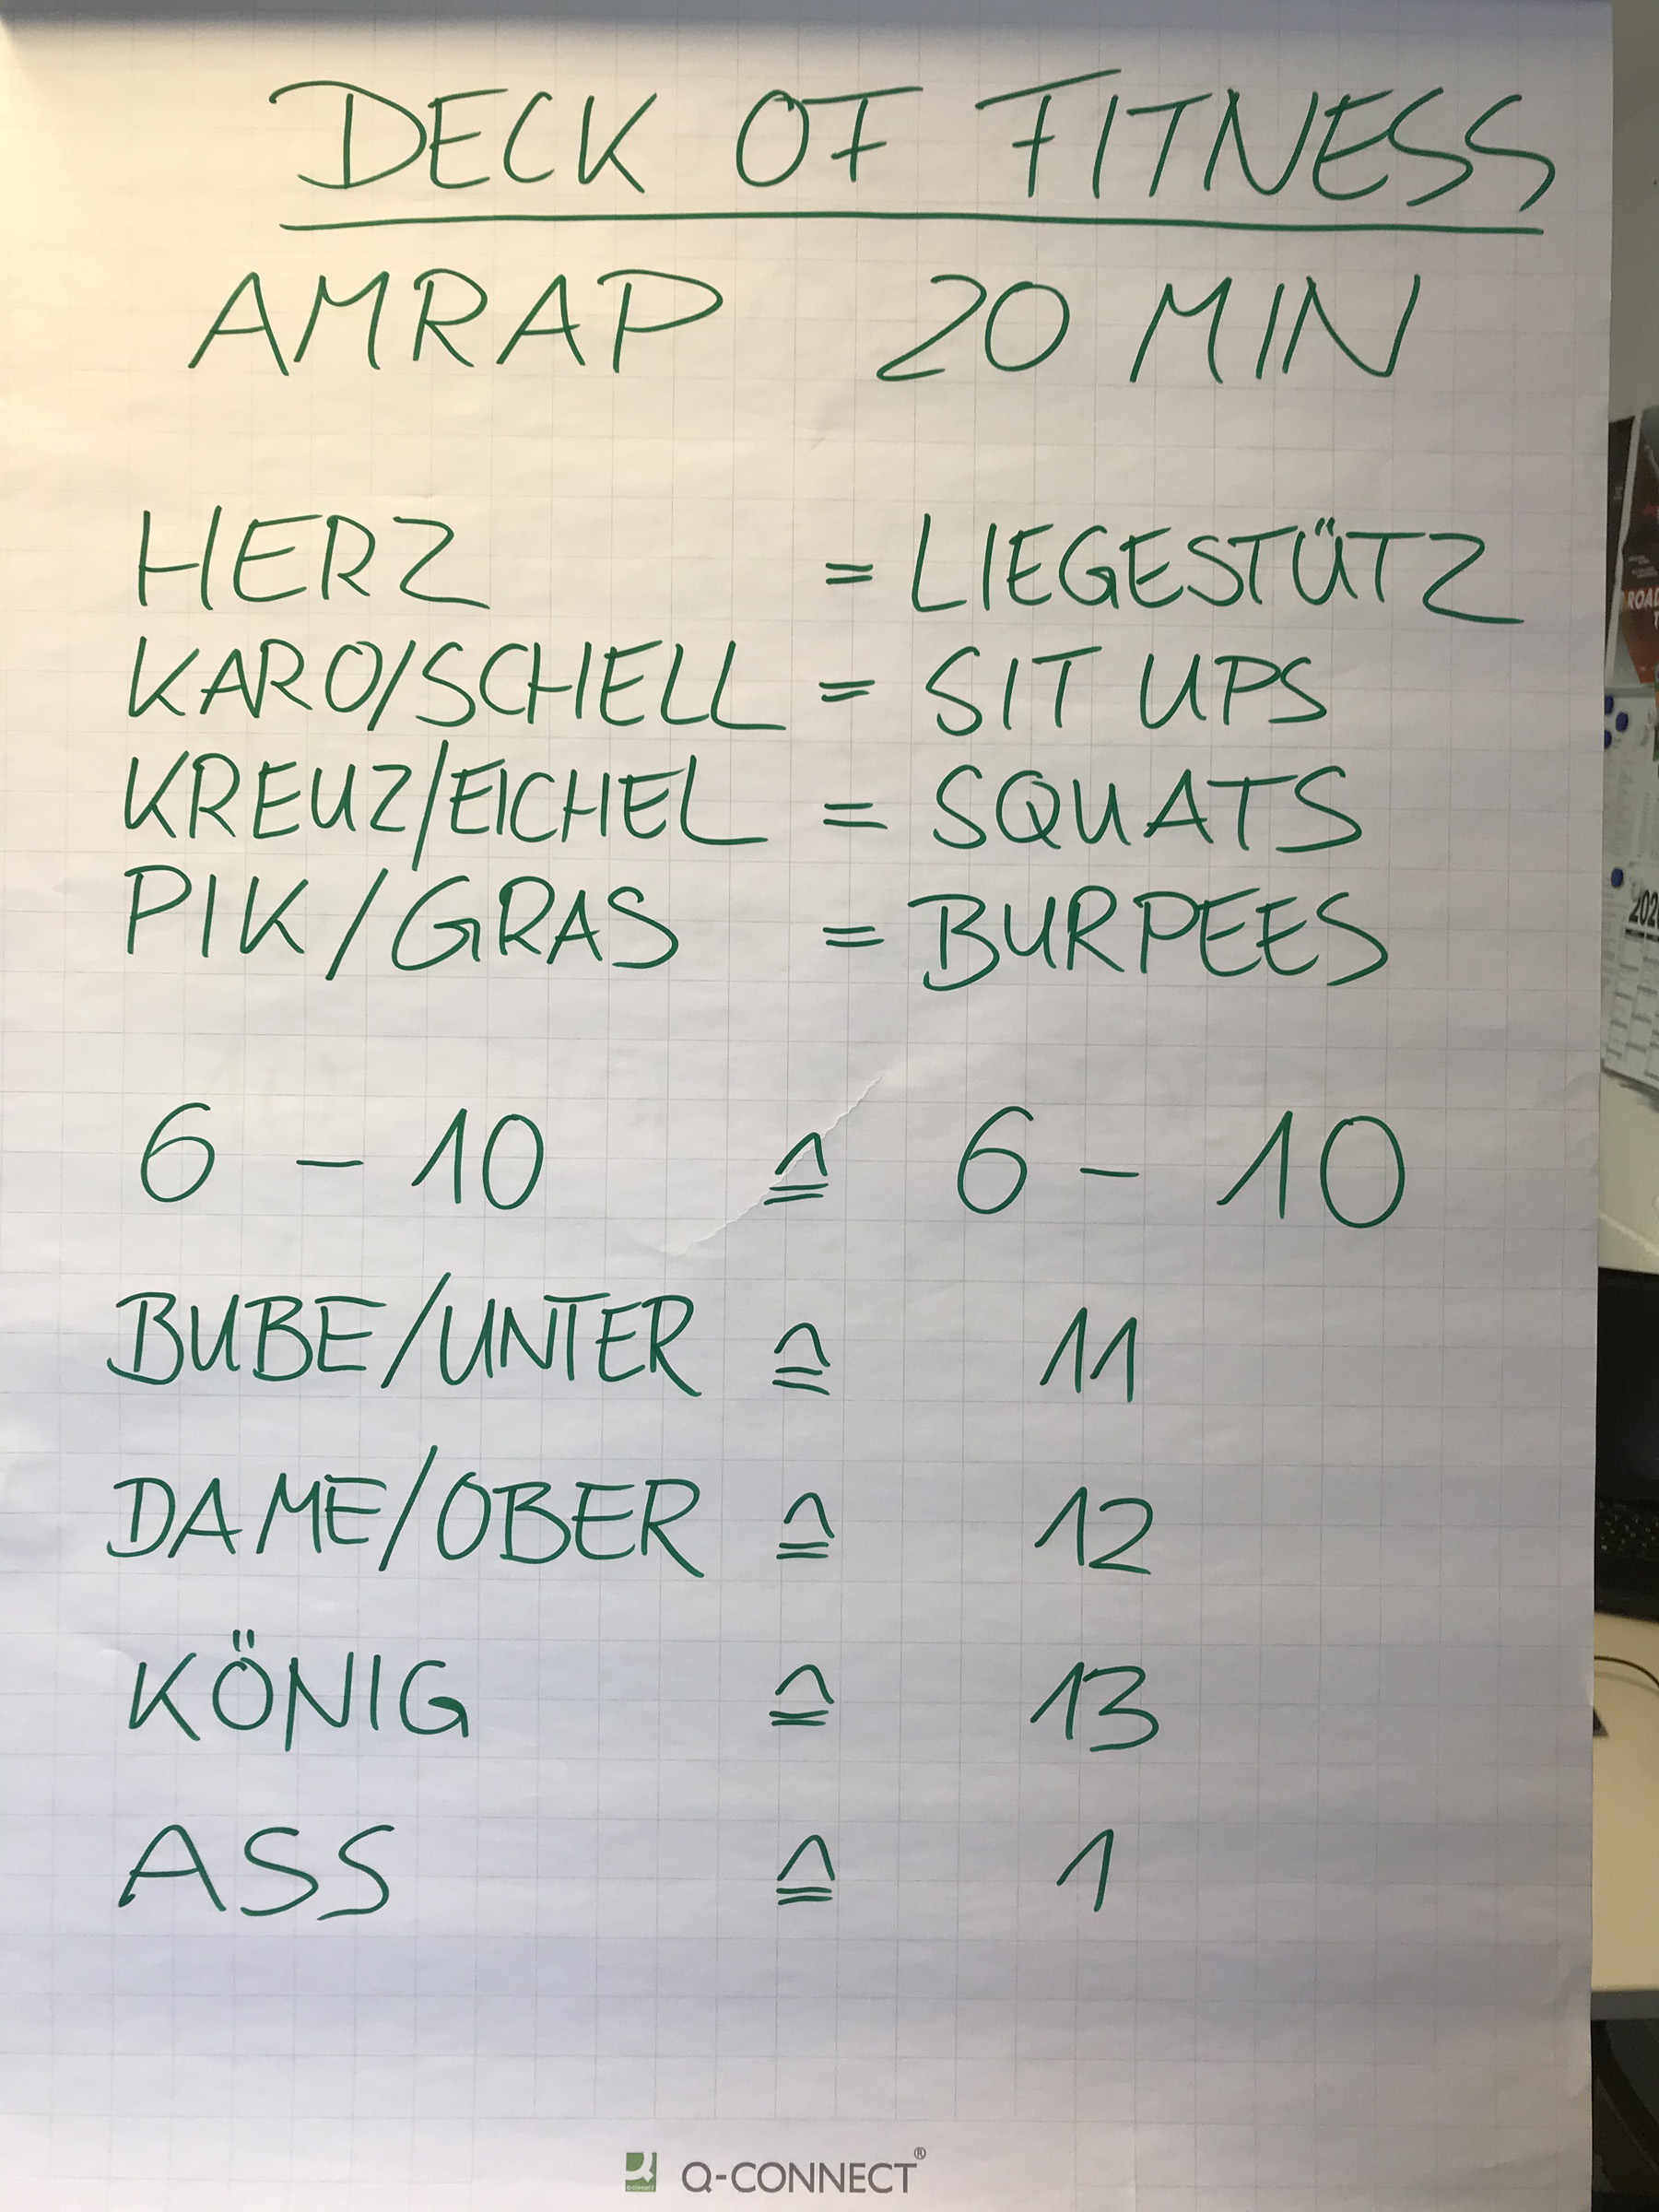 DECK OF FITNESS
AMRAP 20 MIN
HERZ = LIEGESTÜTZ
KARO/SCHELL = SIT UPS
KREUZ/EICHEL = SQUATS
PIK/GRAS = BURPEES
6 - 10 ≙ 6 - 10
BUBE/UNTER ≙ 11
DAME/OBER ≙ 12
KÖNIG ≙ 13
ASS ≙ 1
Q-CONNECT®